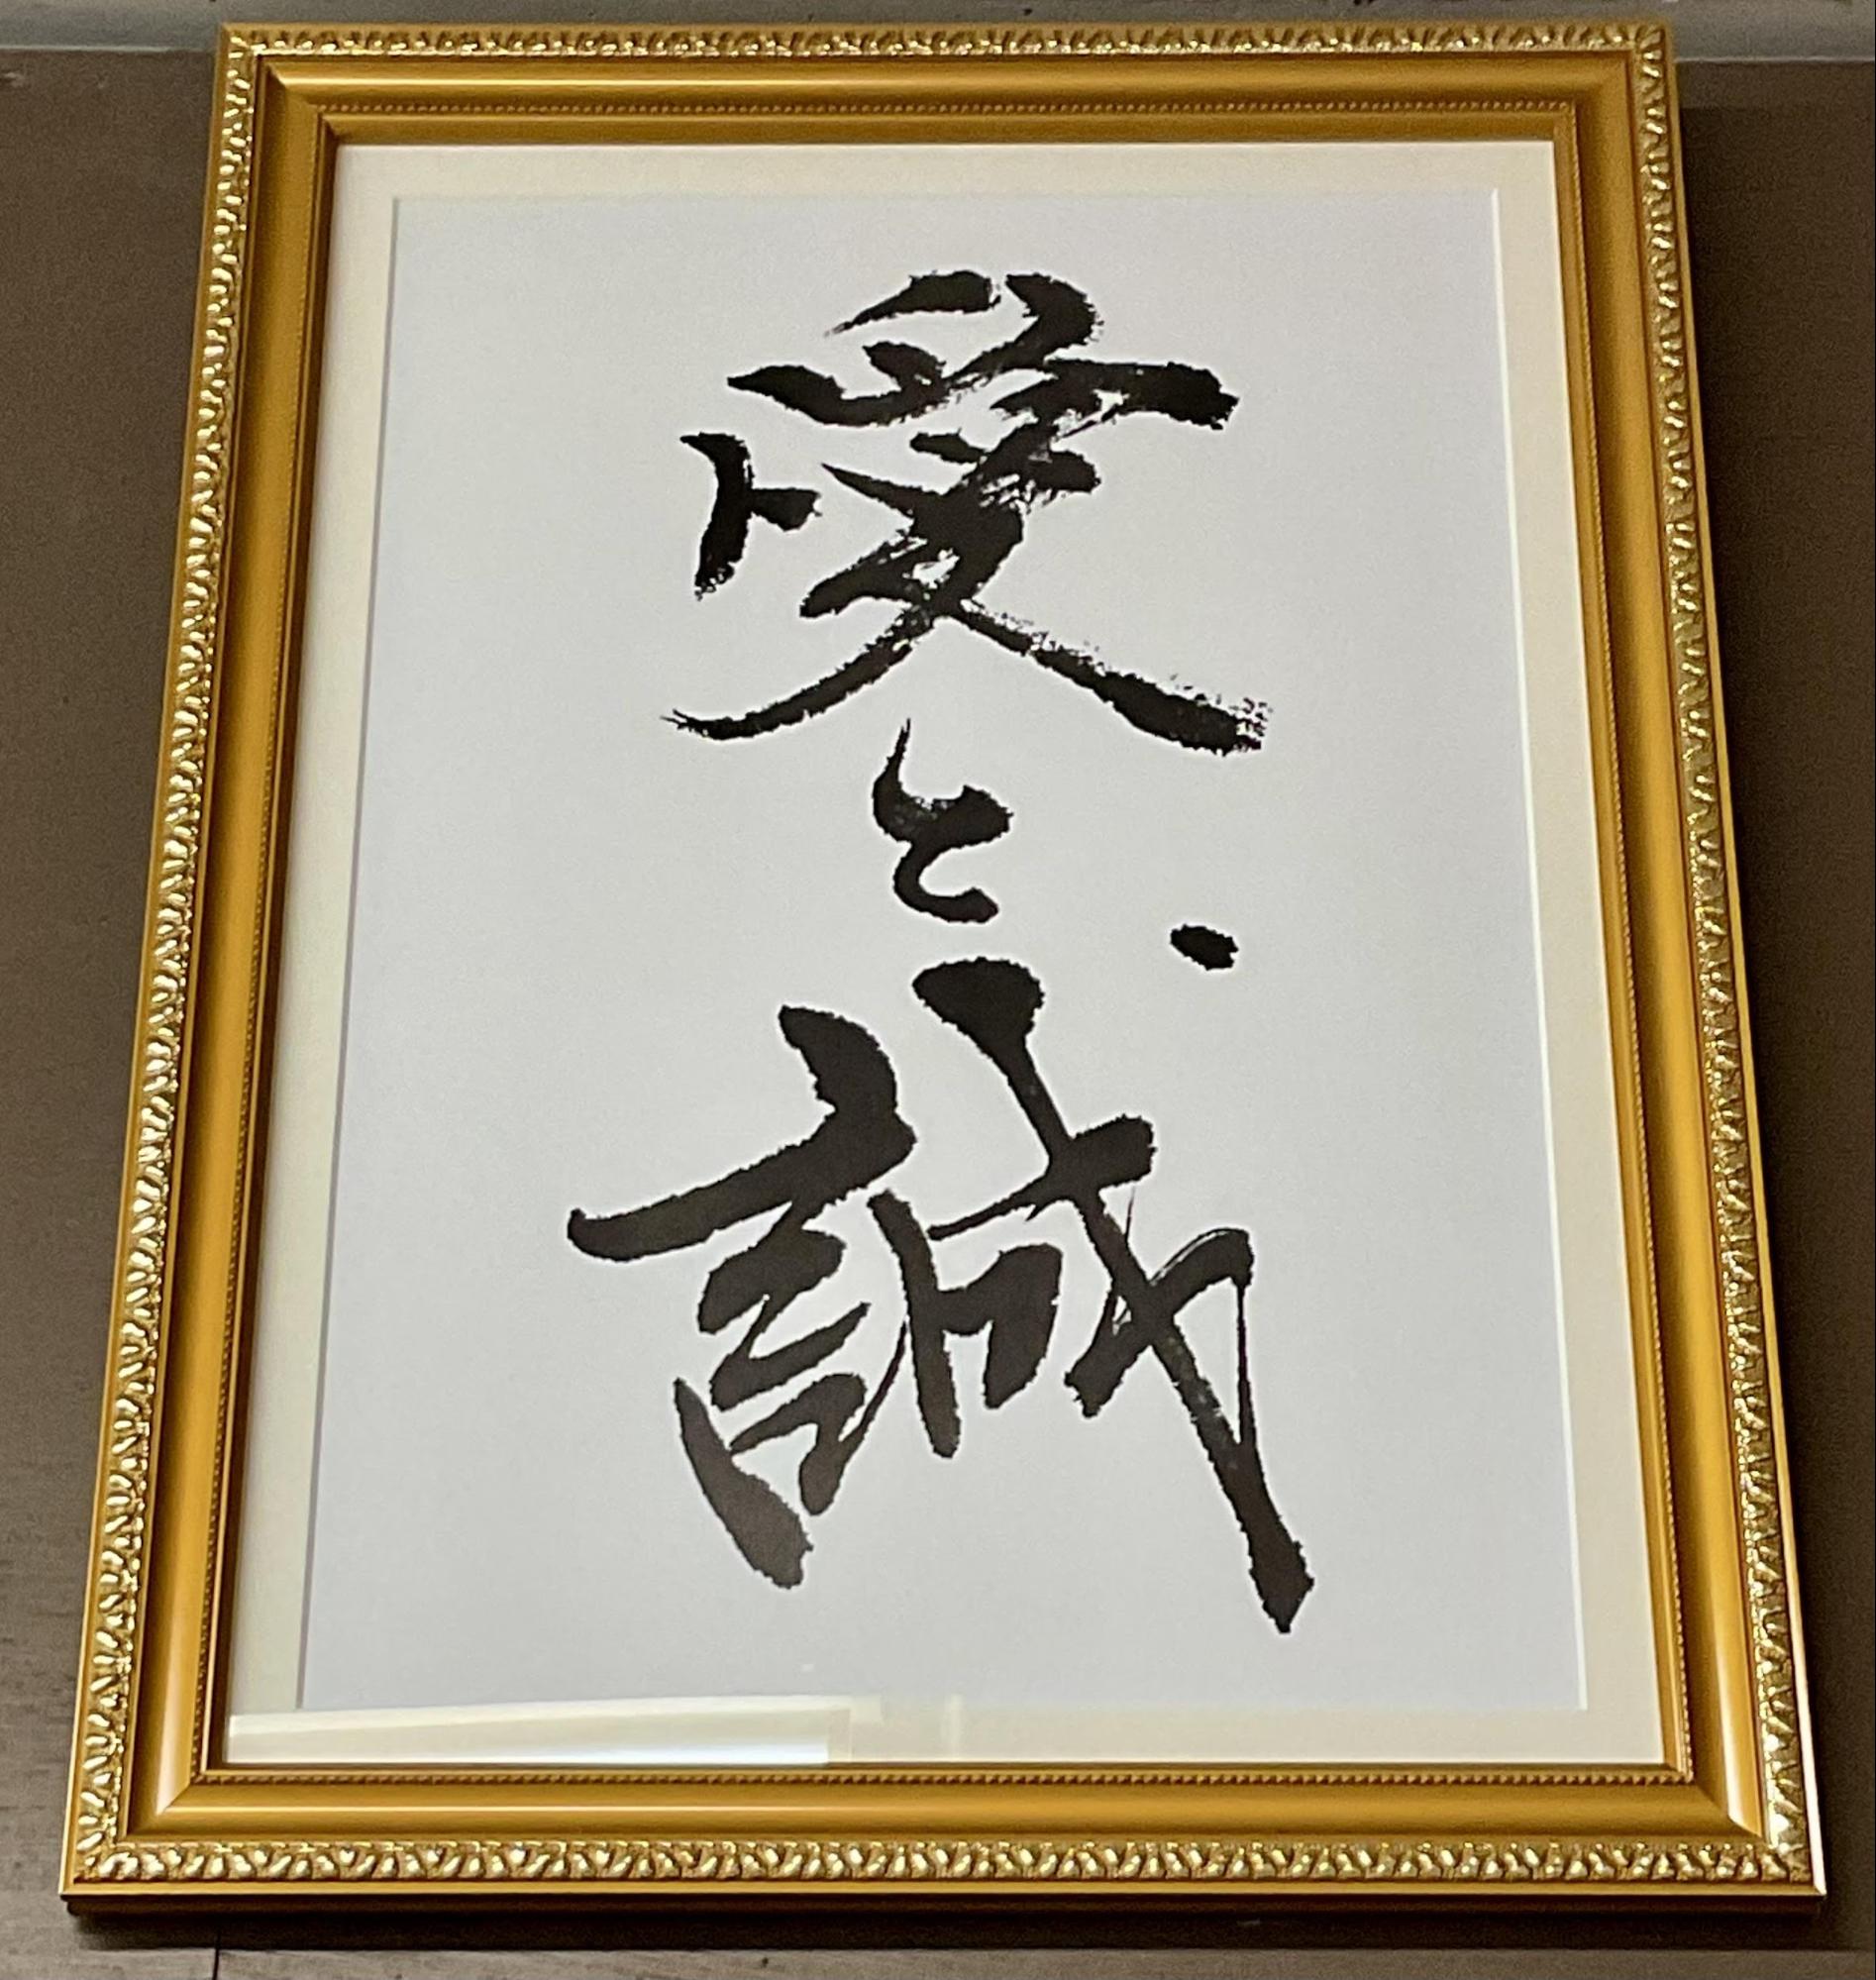 愛と誠